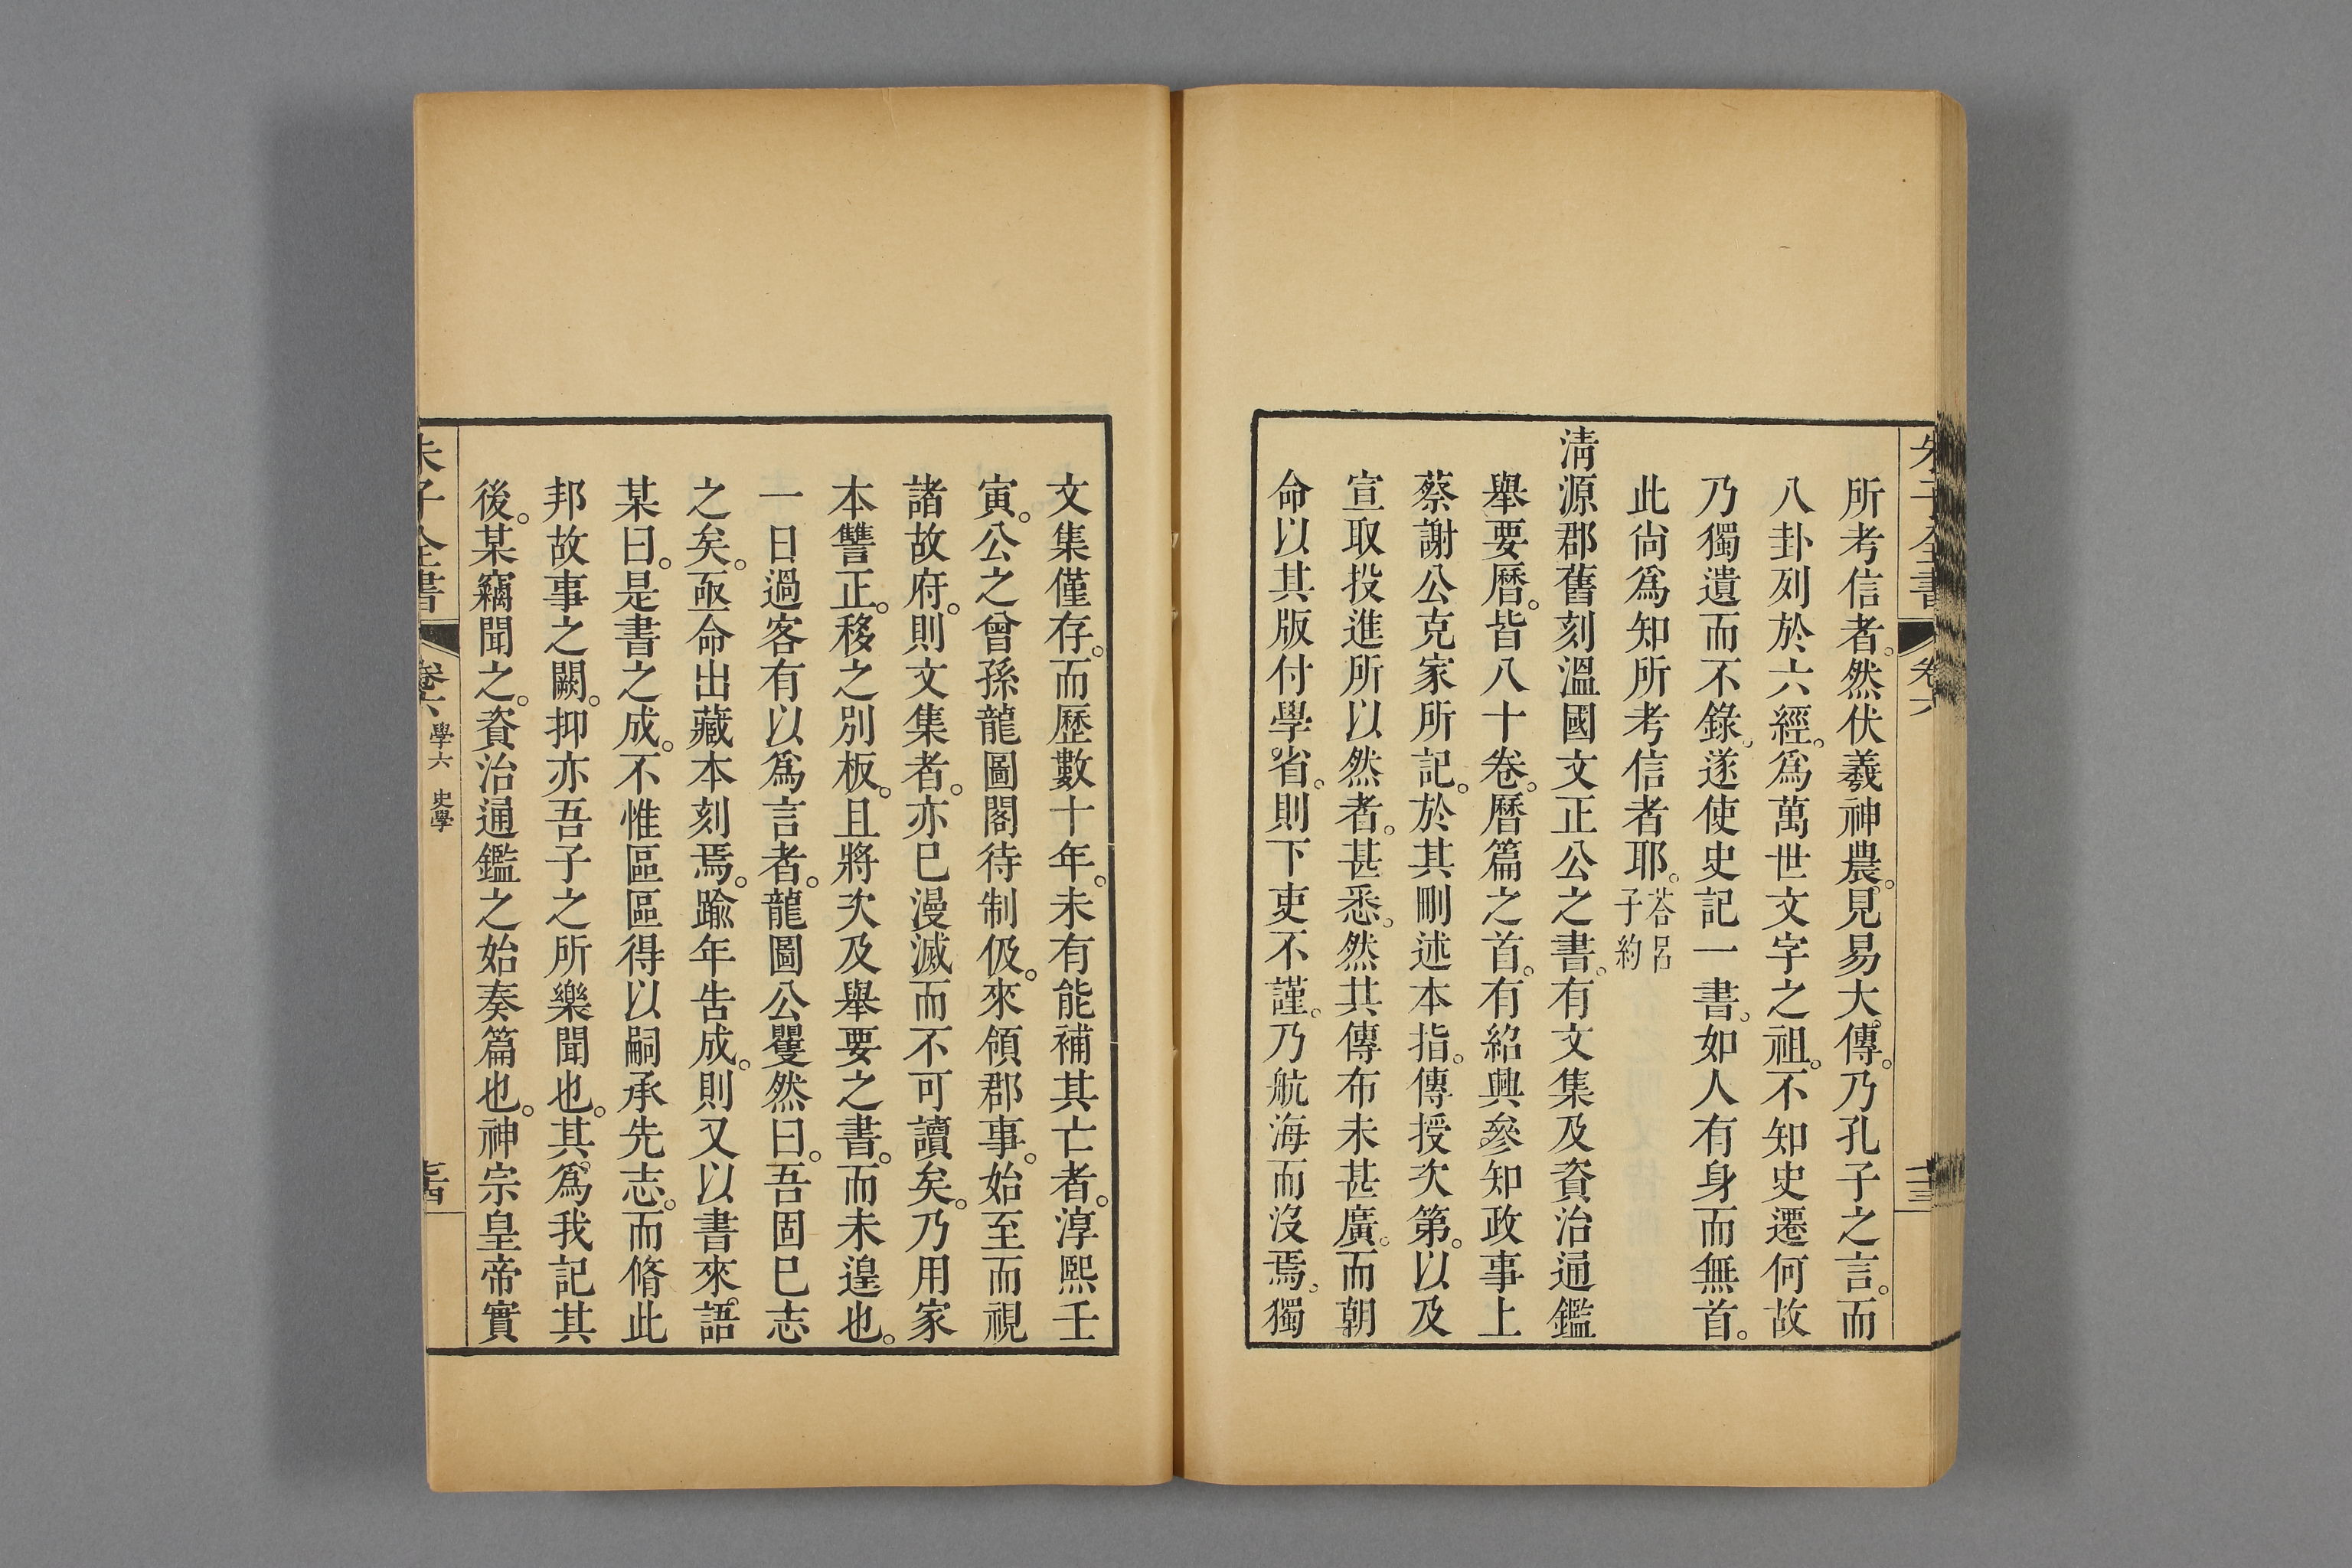 朱子全書 卷六 十三
所考信者。然伏羲神農。見易大傳。乃孔子之言。而
八卦列於六經。爲萬世文字之祖。不知史遷何故
乃獨遺而不錄。遂使史記一書。如人有身而無首。
此尙爲知所考信者耶。答呂子約
淸源郡舊刻溫國文正公之書。有文集及資治通鑑
舉要曆。皆八十卷。曆篇之首。有紹興參知政事上
蔡謝公克家所記。於其刪述本指。傳授次第。以及
宣取投進所以然者。甚悉。然其傳布未甚廣。而朝
命以其版付學省。則下吏不謹。乃航海而沒焉。獨
文集僅存。而歷數十年。未有能補其亡者。淳熙壬
寅。公之曾孫龍圖閣待制伋。來領郡事。始至而視
諸故府。則文集者。亦已漫滅而不可讀矣。乃用家
本讐正。移之別板。且將次及舉要之書。而未遑也。
一日過客有以爲言者。龍圖公矍然曰。吾固已志
之矣。亟命出藏本刻焉。踰年吿成。則又以書來語
某曰。是書之成。不惟區區得以嗣承先志。而脩此
邦故事之闕。抑亦吾子之所樂聞也。其爲我記其
後。某竊聞之。資治通鑑之始奏篇也。神宗皇帝實
朱子全書 卷六 學六 史學 十四